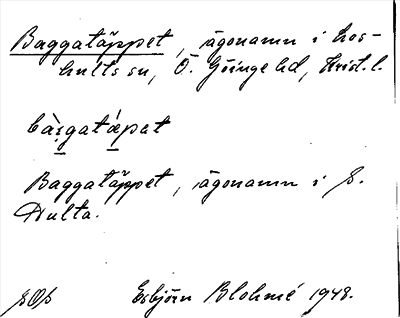 Baggatäppet, ägonamn i Los-
hults sn, Ö. Göinge hd, Krist. l.
bàggatǽpat
Baggatäppet, ägonamn i S.
Hulta.
Esbjörn Blohmé 1948.